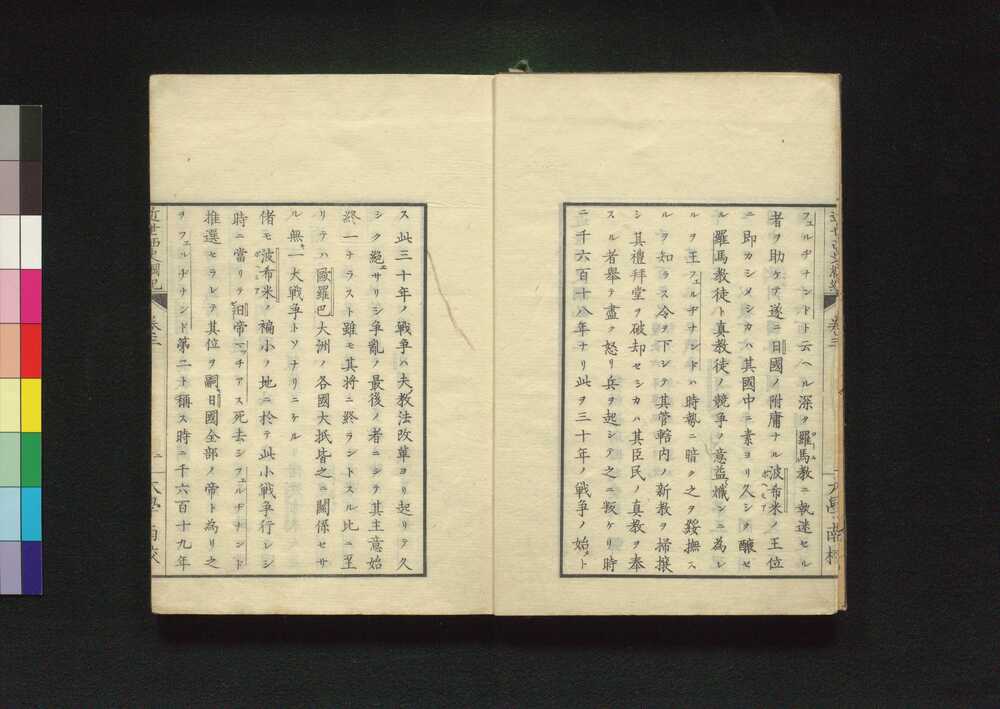 フェルヂナンドト云ヘル深ク羅馬教ニ執迷セル
者ヲ助ケテ遂ニ日國ノ附庸ナル波布米ノ王位
ニ即カシメシカハ其國中ニ素ヨリ久シク醸セ
ル羅馬教徒ト真教徒ノ競争ノ意益熾ンニ為レ
ルヲ王フェルヂナンドハ時勢ニ暗ク之ヲ綏撫ス
ルヲ知ラス令ヲ下シテ其管轄内ノ新教ヲ掃攘
シ其禮拜堂ヲ破却セシカハ其臣民ノ真教ヲ奉
スル者舉テ盡ク怒リ兵ヲ起シテ之ニ叛ケリ時
ニ千六百十八年ナリ此ヲ三十年ノ戦争ノ始メト
ス此三十年ノ戦争ハ夫教法改革ヨリ起リテ久
シク絕エサリシ争亂ノ最後ノ者ニシテ其主意始
終一ナラスト雖モ其将ニ終ラントスル比ニ至
リテハ歐羅巴大洲ノ各國大抵皆之ニ關係セサ
ル無ク一大戦争トソナリニケル
偖モ波布米ノ褊小ノ地ニ於テ此小戦争行レシ
時ニ當リテ日帝マッチアス死去シフェルヂナンド
推選セラレテ其位ヲ嗣キ日國全部ノ帝ト為リ之
ヲフェルヂナンド第二ト稱ス時ニ千六百十九年
近世西史綱紀
卷三
二
大學南校